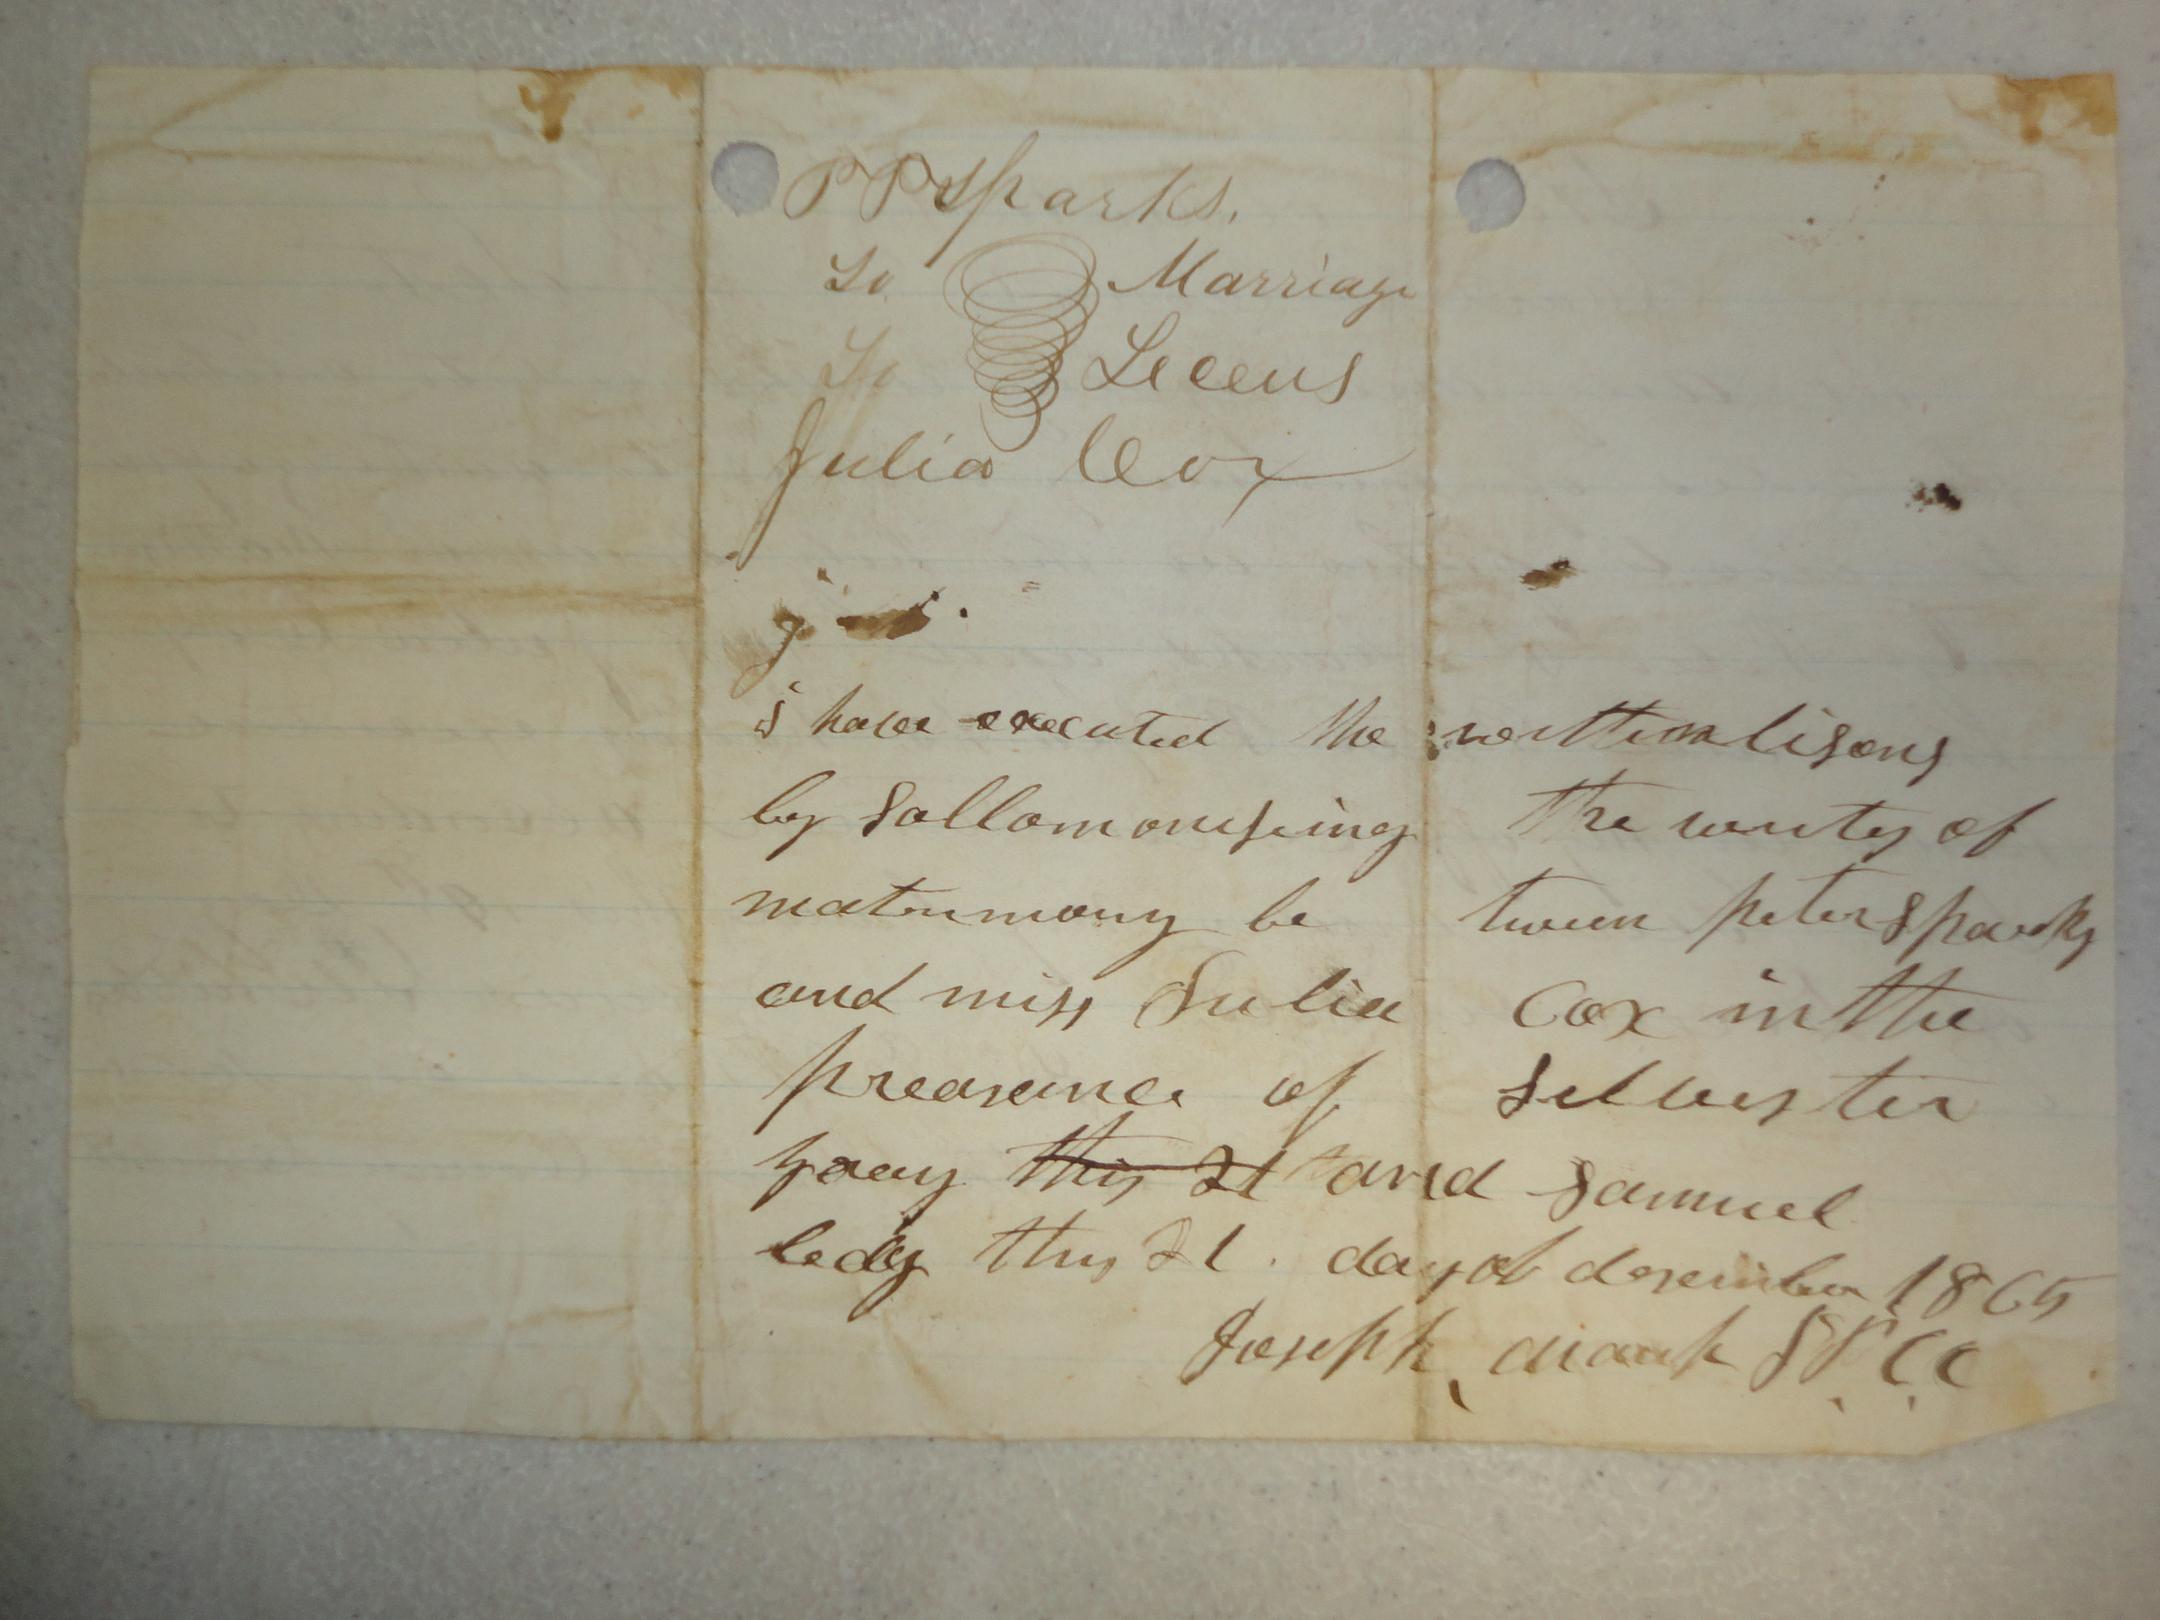 P P Sparks.
To Marriage
To Lecens
Julia Cox
j
i have executed the writtin lisens
by Sollomonising the writs of
matrimony be tween peter Sparks
and miss Julia Cox in the
preasence of Silvester
gray this 21 and Samuel
ledy this 21. day of desember 1865
Joseph